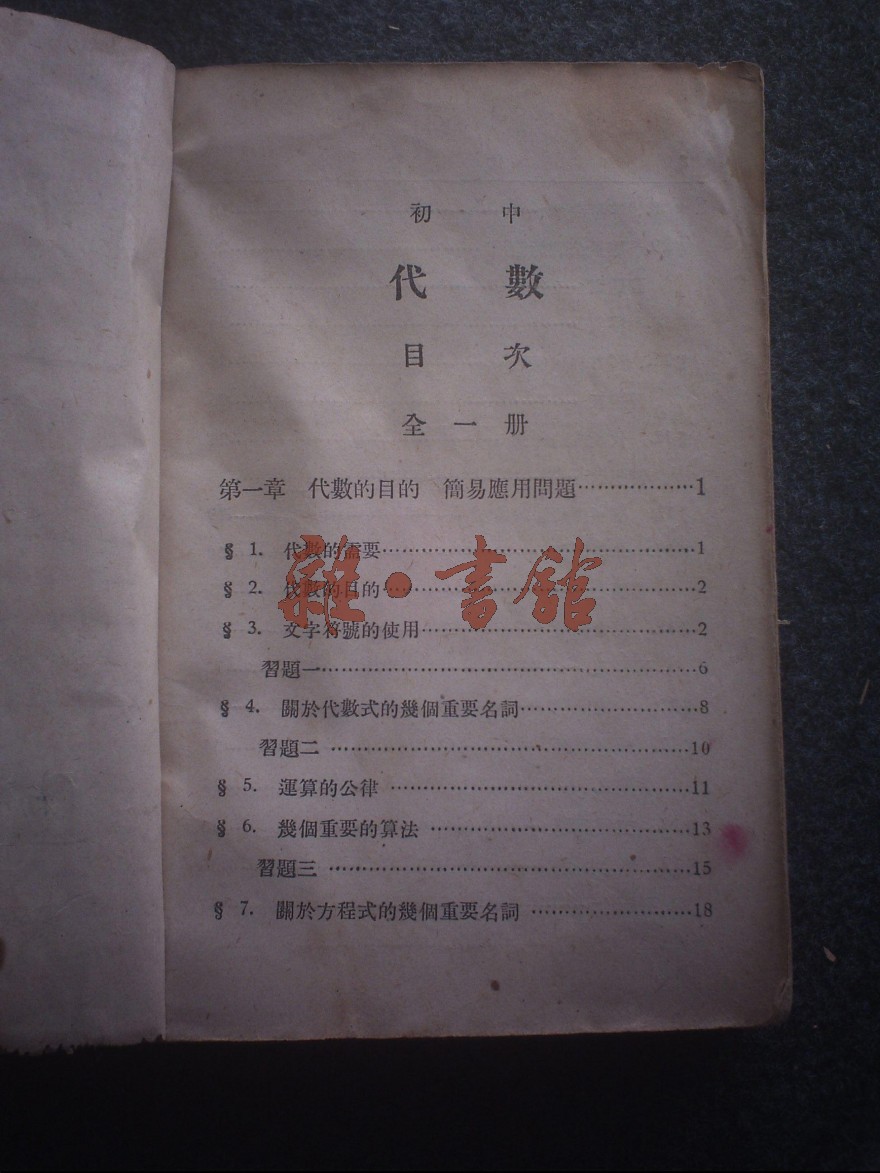 初中
代數
目次
全一册
第一章 代數的目的 簡易應用問題………………1
§ 1. 代數的需要………………1
§ 2. 代數的目的………………2
§ 3. 文字符號的使用………………2
習題一………………6
§ 4. 關於代數式的幾個重要名詞………………8
習題二………………10
§ 5. 運算的公律………………11
§ 6. 幾個重要的算法………………13
習題三………………15
§ 7. 關於方程式的幾個重要名詞………………18
雜·書館